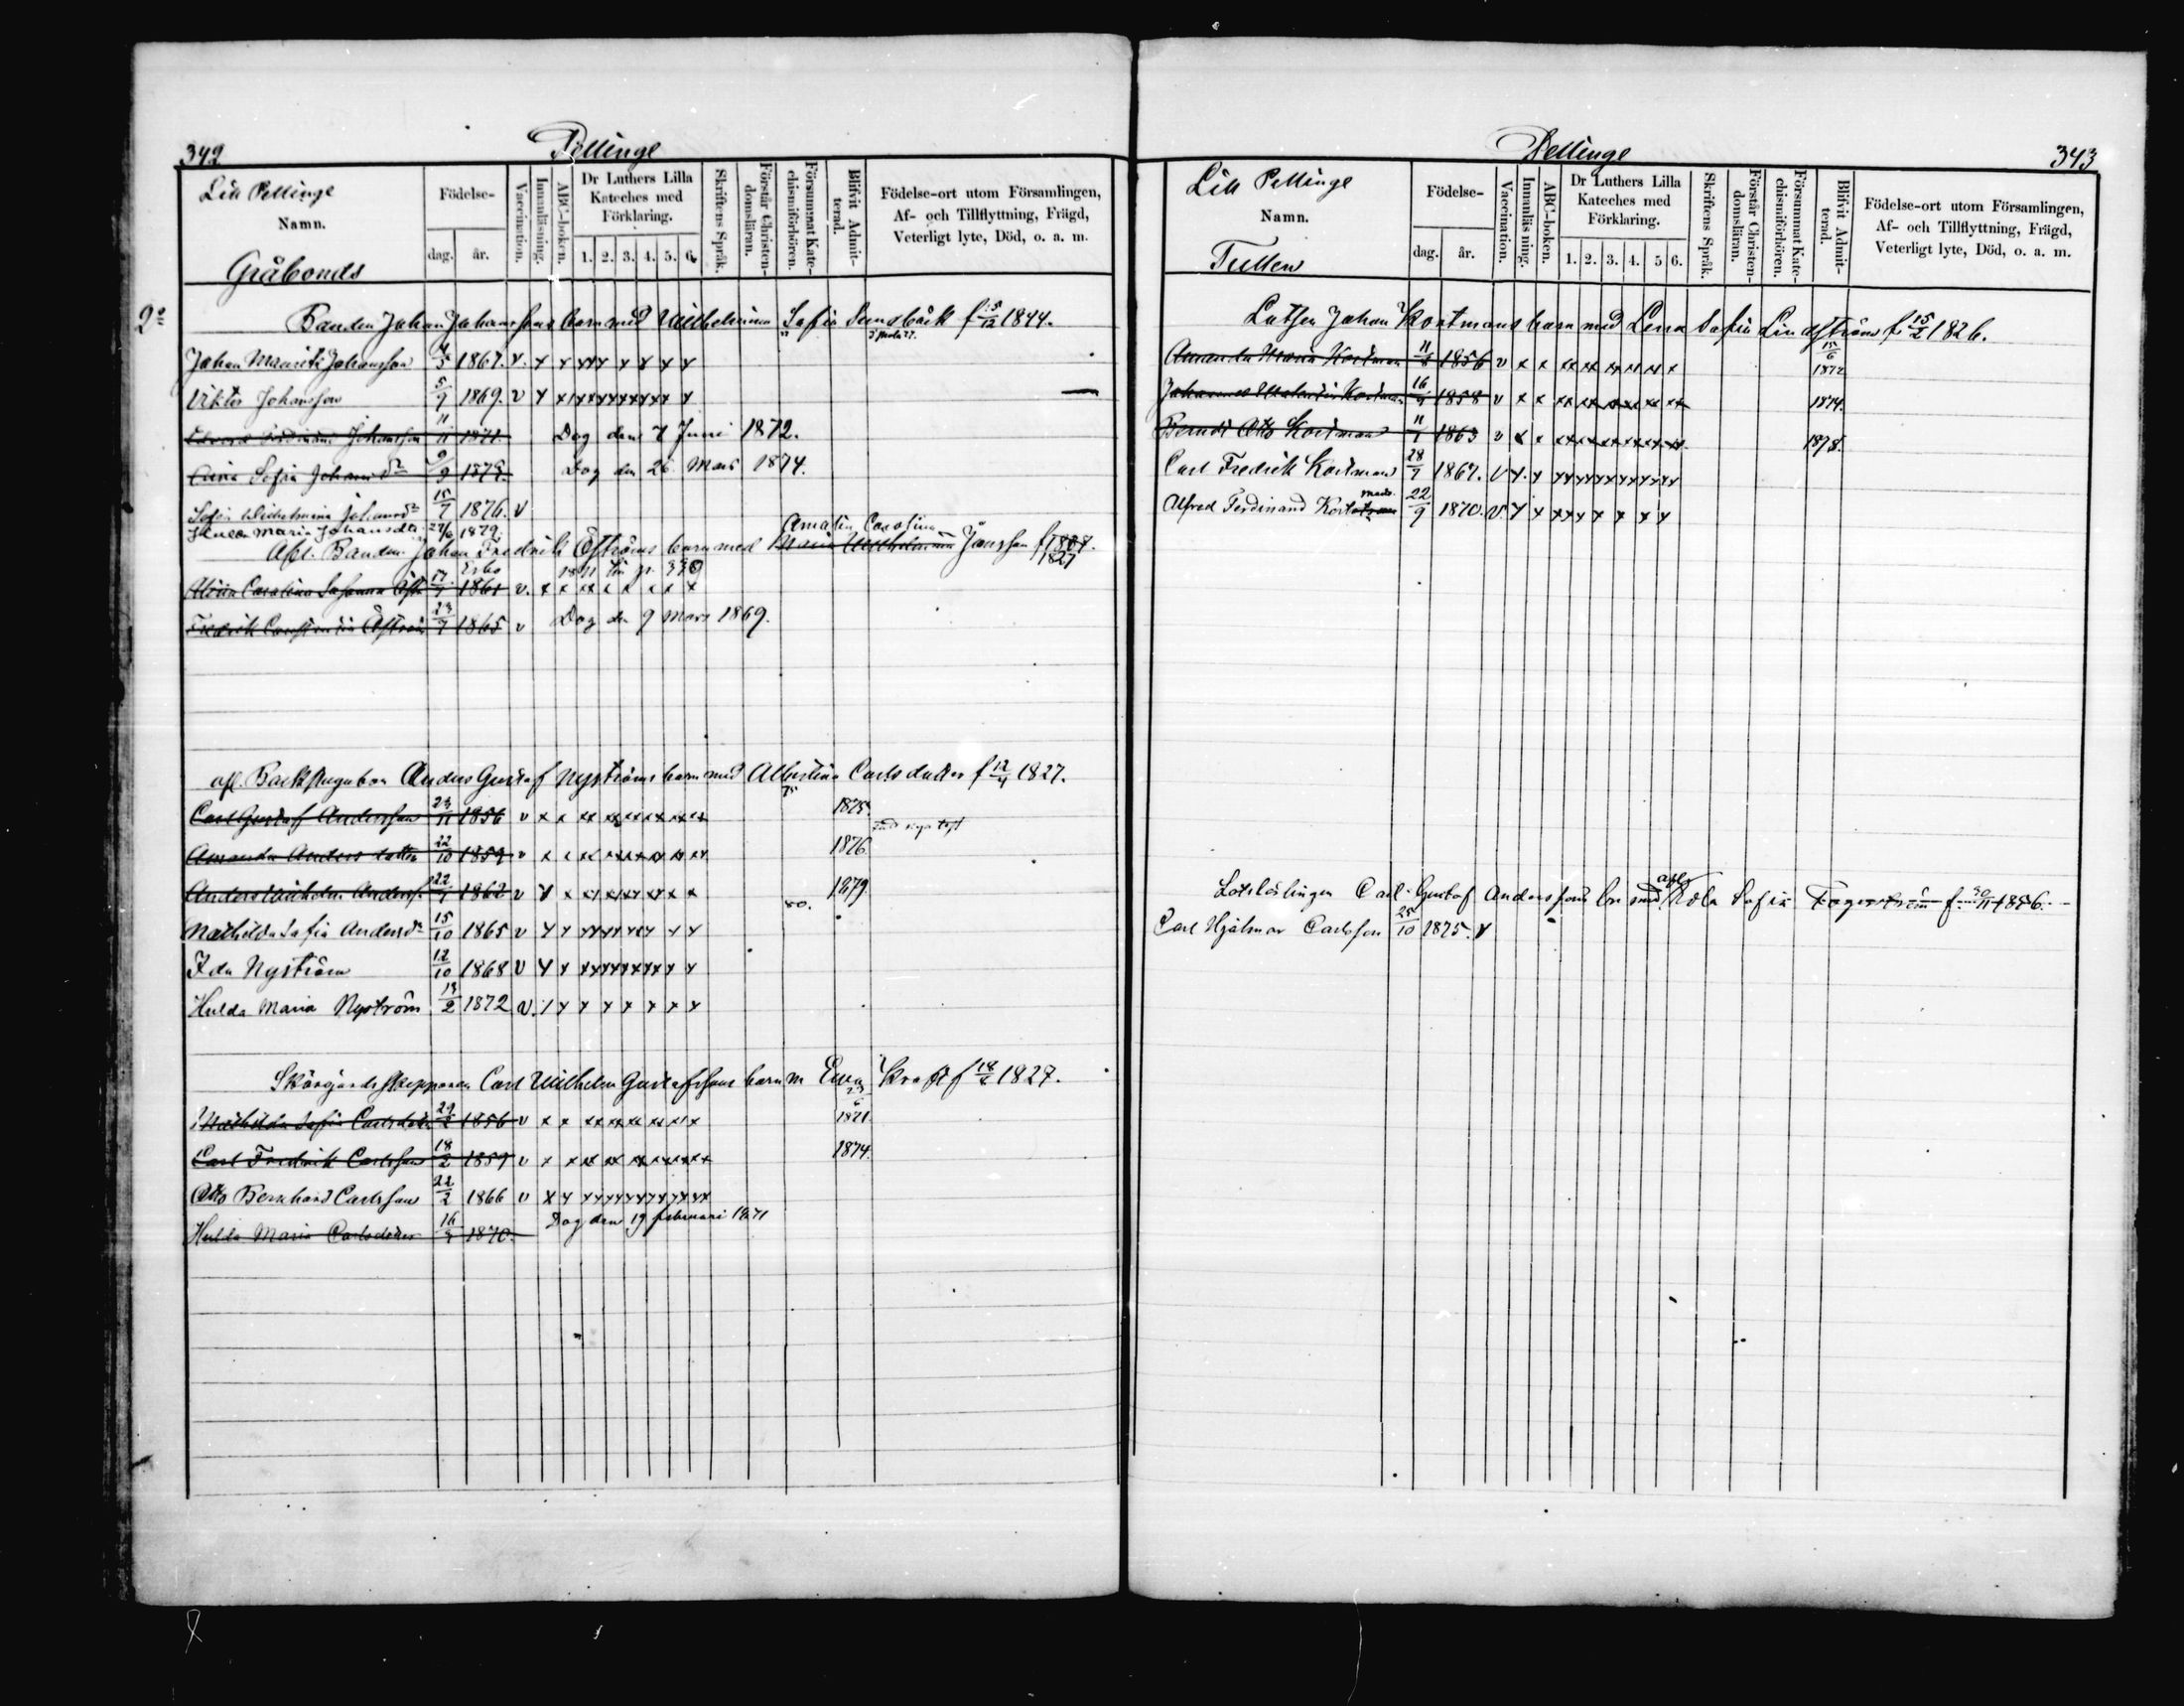 342
Pellinge
Lill Pellinge
Namn.
Födelse-
dag.
år.
Vaccination.
Innanläsning.
ABC-boken.
Dr Luthers Lilla
Kateches med
Förklaring.
1. 2. 3. 4. 5. 6.
Skriftens Språk.
Förstår Christen-
domsläran.
Försummat Kate-
chismiförhören.
Blifvit Admit-
terad.
Födelse-ort utom Församlingen,
Af- och Tillflyttning, Frägd,
Veterligt lyte, Död, o. a. m.
Gråbonds
2o
Bonden Johan Johanssons barn med Wilhelmina Sofia f 15/12 1844.
Johan Mauritz Johansson 1867. v. x x x x x x x x x
Viktor Johansson 5/9 1869. v x x x x x x x x x x
Edvard Ferdinand Johansson 11/11 1871. Dog den 7 Juni 1872.
Sofia Johansdr 9/9 1873. Dog den 26 Mars 1874.
Sofia Wilhelmina Johansdr 15/7 1876. v
Maria Johansdtr 27/6 1879.
Afl. Bonden Johan Fredrik Öströms barn med Maria Wilhelmina Amalia Carolina Jönsson f 1827
Carolina Johanna 17/7 1861 v. x x x x x x x x
Fredrik Constantin Öström 23/7 1865 v Dog den 9 Mars 1869.
afl. Anders Gustaf Nyströms barn med Albertina Carlsdotter f 12/4 1827.
Carl Gustaf Andersson 23/11 1856 v x x xx xx xx xx xx 1875.
Amanda Andersdotter 22/10 1859 v x x xx xx xx xx xx 1876
Anders Wilhelm Anderss. 22/7 1862 v x x x x x x x x x 80. 1879
Mathilda Sofia Andersdr 15/10 1865 v x x x x x x x x x
Ida Nyström 12/10 1868 v x x x x x x x x x x
Hulda Maria Nyström 13/2 1872 v. x x x x x x x x
Skärgårdsskepparen Carl Wilhelm Gustafssons barn m Eva Kraft f 1827.
Mathilda Sofia Carlsdotter 29/2 1856 v x x xx xx xx xx x 1871.
Carl Fredrik Carlsson 18/2 1859 v x x xx xx xx xx xx 1874.
Otto Bernhard Carlsson 22/2 1866 v x x x x x x x x x x x
Hulda Maria Carlsdotter 1870. Dog den 19 februari 1871
Pellinge
343
Lill Pellinge
Namn.
Födelse-
dag.
år.
Vaccination.
Innanläsning.
ABC-boken.
Dr Luthers Lilla
Kateches med
Förklaring.
1. 2. 3. 4. 5 6.
Skriftens Språk.
Förstår Christen-
domsläran.
Försummat Kate-
chismiförhören.
Blifvit Admit-
terad.
Födelse-ort utom Församlingen,
Af- och Tillflyttning, Frägd,
Veterligt lyte, Död, o. a. m.
Tullen
Lotsen Johan Kortmans barn med Lena Sofia Lindström f 15/2 1826.
Amanda Maria Kortman 1856 v x x xx xx xx xx xx x 15/6 1872
Johannes Kortman 1858 v x x xx xx xx xx xx xx 1874.
Berndt Otto Kortman 11/1 1863 v x x xx xx xx xx xx xx 1878.
Carl Fredrik Kortman 28/7 1867. v x. x x x x x x x x x x x x
Alfred Ferdinand Kortman 22/9 1870. v. x x x x x x x x x
Lotslärlingen Carl Gustaf Anderssons br med afl. Sofia Fagerström f. 30/11 1856.
Carl Hjalmar Carlsson 25/10 1875. v